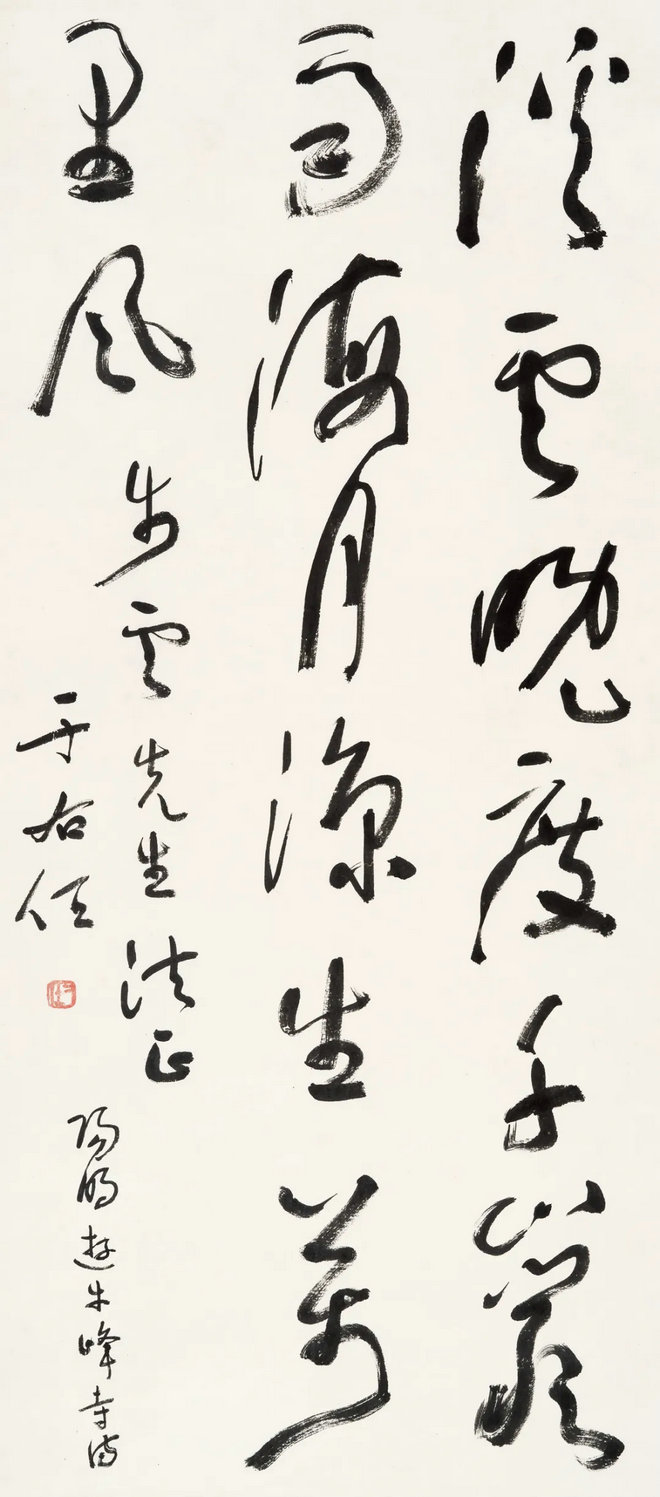 溪雲晚度千巖
雨海月涼生萬
里風
步雲先生法正
于右任
陽明遊牛峰寺詩